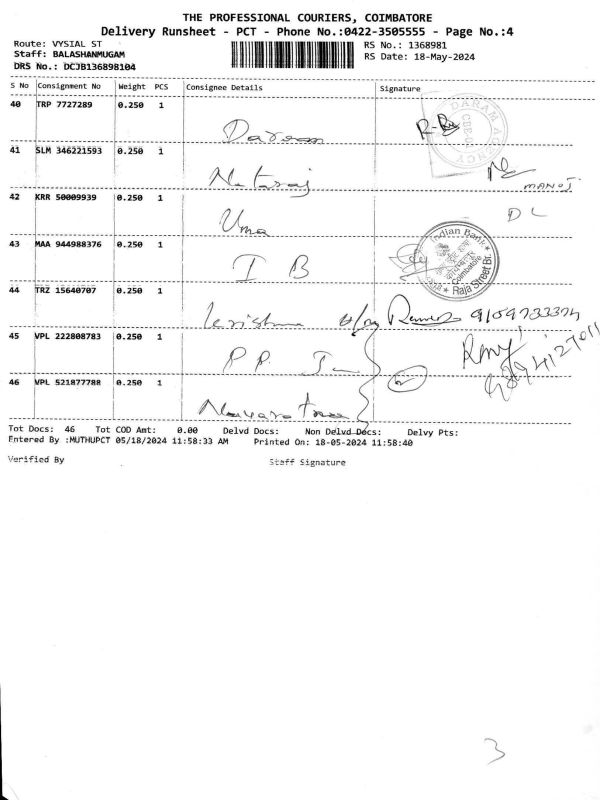 THE PROFESSIONAL COURIERS, COIMBATORE
Delivery Runsheet - PCT - Phone No.:0422-3505555 - Page No.:4
Route: VYSIAL ST
Staff: BALASHANMUGAM
DRS No.: DCJB136898104
RS No.: 1368981
RS Date: 18-May-2024
S No Consignment No Weight PCS Consignee Details Signature
40 TRP 7727289 0.250 1
DARAM AGENCY
41 SLM 346221593 0.250 1
Nataraj
MANOJ
42 KRR 50009939 0.250 1
Uma DL
43 MAA 944988376 0.250 1
I B
Indian Bank
Coimbatore
Raja Street Br.
44 TRZ 15640707 0.250 1
Krishna
45 VPL 222808783 0.250 1
P.P.
46 VPL 521877788 0.250 1
Tot Docs: 46 Tot COD Amt: 0.00 Delvd Docs: Non Delvd Docs: Delvy Pts:
Entered By :MUTHUPCT 05/18/2024 11:58:33 AM Printed On: 18-05-2024 11:58:40
Verified By Staff Signature
3